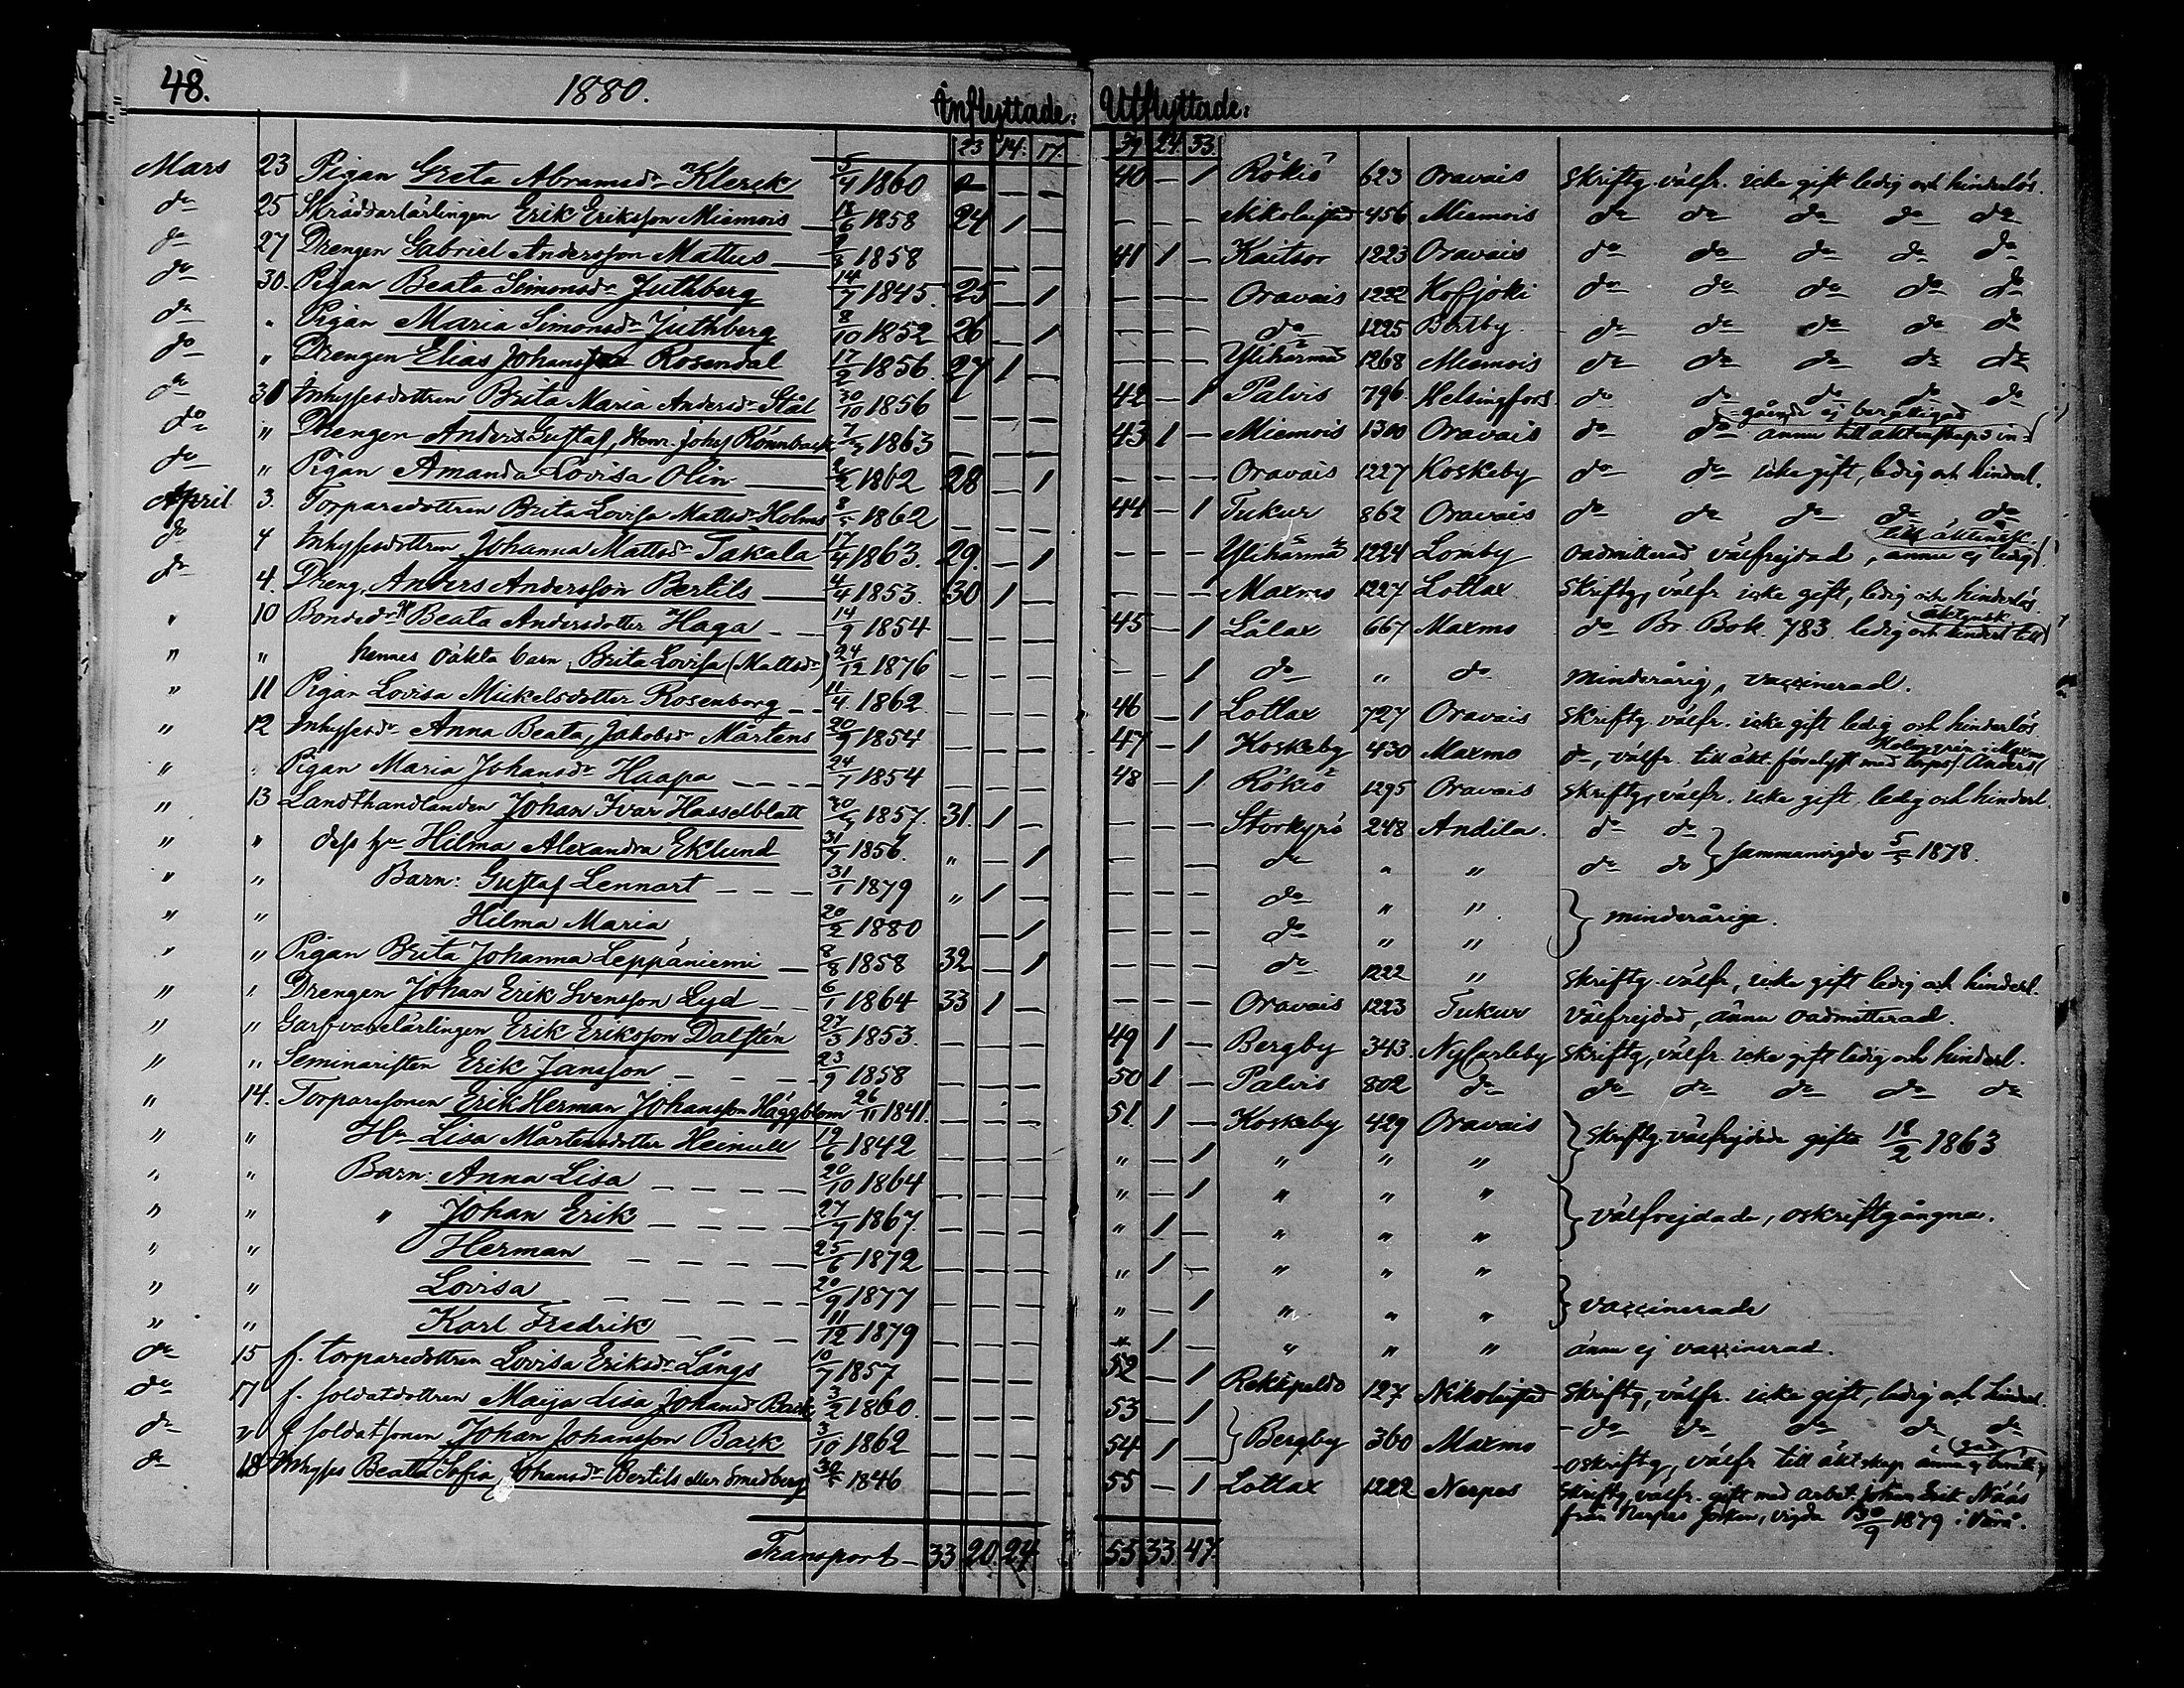 48. 1880. Inflyttade: Utflyttade:
23 14. 17. 39 24. 33.
Mars 23 Pigan Greta Abramsdr Klerck 5/4 1860 — — — 40 — 1 Rökiö 623 Oravais Skriftg. välfr. icke gift ledig och hinderlös.
do 25 Skräddarlärlingen Erik Eriksson Miemois 18/6 1858 24 1 — — — — Nikolaistad 456 Miemois do do do do do
do 27 Drengen Gabriel Andersson Mattus 1858 — — — 41 1 — Kaitsor 1223 Oravais do do do do do
do 30. Pigan Beata Simonsdr Juthberg 14/7 1845. 25 — 1 — — — Oravais 1222 Kofjoki do do do do do
do " Pigan Maria Simonsdr Juthberg 8/10 1852 26 — 1 — — — do 1225 Bertby do do do do do
do " Drengen Elias Johansson Rosendal 17/2 1856. 27 1 — — — — Ylihärmä 1268 Miemois do do do do do
do 31 Inhysesdottren Brita Maria Andersdr Stål 30/10 1856 — — — 42 — 1 Palvis 796 Helsingfors do do do do do
do " Drengen Anders Gustaf, Henr. Johss Rönnback 1863 — — — 43 1 — Miemois 1300 Oravais do do ännu till äktenskaps in= =gående ej berättigad
do " Pigan Amanda Lovisa Olin 1862 28 — 1 — — — Oravais 1227 Koskeby do do icke gift, ledig och hinderl.
April 3. Torparedottren Brita Lovisa Mattsdr Holms 1862 — — — 44 — 1 Tukur 862 Oravais do do do do do
do 4 Inhysesdottren Johanna Mattsdr Takala 17/4 1863. 29. — 1 — — — Ylihärmä 1224 Lomby oadmitterad välfrejdad, ännu ej ledig till äktensk.
do 4. Dreng. Anders Andersson Bertils 4/4 1853. 30 1 — — — — Maxmo 1227 Lotlax. Skriftg, välfr icke gift, ledig och hinderlös.
" 10 Bondedr Beata Andersdotter Haga 14/9 1854 — — — 45 — 1 Lålax 667 Maxmo do Br. Bok. 783. ledig och hinderl till äktensk.
" " hennes oäkta barn, Brita Lovisa (Mattsdr) 24/12 1876 — — — — — 1 do " do minderårig, vaccinerad.
" 11 Pigan Lovisa Mickelsdotter Rosenborg 11/4 1862. — — — 46 — 1 Lotlax 727 Oravais Skriftg. välfr. icke gift ledig och hinderlös.
" 12 Inhysesdr Anna Beata, Jakobsdr Mårtens 20/9 1854 — — — 47 — 1 Koskeby 430 Maxmo do, välfr. till äkt. förelyst med torps. Anders Holmgren i Maxmo
" " Pigan Maria Johansdr Haapa 24/7 1854 — — — 48 — 1 Rökiö 1295 Oravais Skriftg, välfr. icke gift. ledig och hinderl.
" 13 Landthandlanden Johan Ivar Hasselblatt 1857. 31. 1 — — — — Storkyrö 248 Andila. do do
" " dess hu Hilma Alexandra Eklund 31/7 1856. " — 1 — — — do " " do do } Sammanvigde 5/5 1878.
" " Barn: Gustaf Lennart 31/1 1879 " 1 — — — — do " "
" " Hilma Maria 20/2 1880 — 1 — — — do " " } minderåriga.
" " Pigan Brita Johanna Leppäniemi 8/8 1858 32 — 1 — — — do 1222 " Skriftg. välfr, icke gift ledig och hinderl.
" " Drengen Johan Erik Svensson Lyd 6/1 1864 33 1 — — — — Oravais 1223 Tukur Välfrejdad, ännu oadmitterad.
" " Garfvarelärlingen Erik Eriksson Dalstén 27/3 1853. — — — 49 1 — Bergby 343. NyCarleby Skriftg, välfr. icke gift ledig och hinderl.
" " Seminaristen Erik Jansson 23/9 1858 — — — 50 1 — Palvis 802 do do do do do do
" 14. Torparesonen Erik Herman Johansson Häggblom 26/11 1841. — — — 51. 1 — Koskeby 429 Oravais
" " Hu Lisa Mårtensdotter Heinull 19/6 1842 — — — " — 1 " " " } Skriftg. välfrejdade gifta 18/2 1863
" " Barn: Anna Lisa 20/10 1864 — — — " — 1 " " "
" " " Johan Erik 27/7 1867. — — — " 1 — " " " } välfrejdade, oskriftgångna.
" " Herman 25/6 1872 — — — " 1 — " " "
" " Lovisa 20/9 1877 — — — " — 1 " " " } vaccinerade
" " Karl Fredrik 11/12 1879 — — — " 1 — " " " ännu ej vaccinerad.
do 15 f. torparedottren Lovisa Eriksdr Långs 10/7 1857 — — — 52 — 1 Rekkipeldo 127 Nikolaistad Skriftg, välfr. icke gift, ledig och hinderl.
do 17 f. soldatdottren Maija Lisa Johansdr Back 3/2 1860. — — — 53 — 1 } Bergby 360 Maxmo do do do do do
do " f soldatsonen Johan Johansson Back 3/10 1862 — — — 54 1 — oskriftg, välfr till äktskap ännu ej berätti gad
do 18 Inhyses Beata Sofia, Johansdr Bertils eller Smedberg 1846 — — — 55 — 1 Lotlax 1222 Nerpes Skriftg. välfr. gift med arbet. Johan Erik Näås
från Nerpes socken, vigda 30/9 1879 i Vörå.
Transport — 33 20. 24. 55 33. 47.